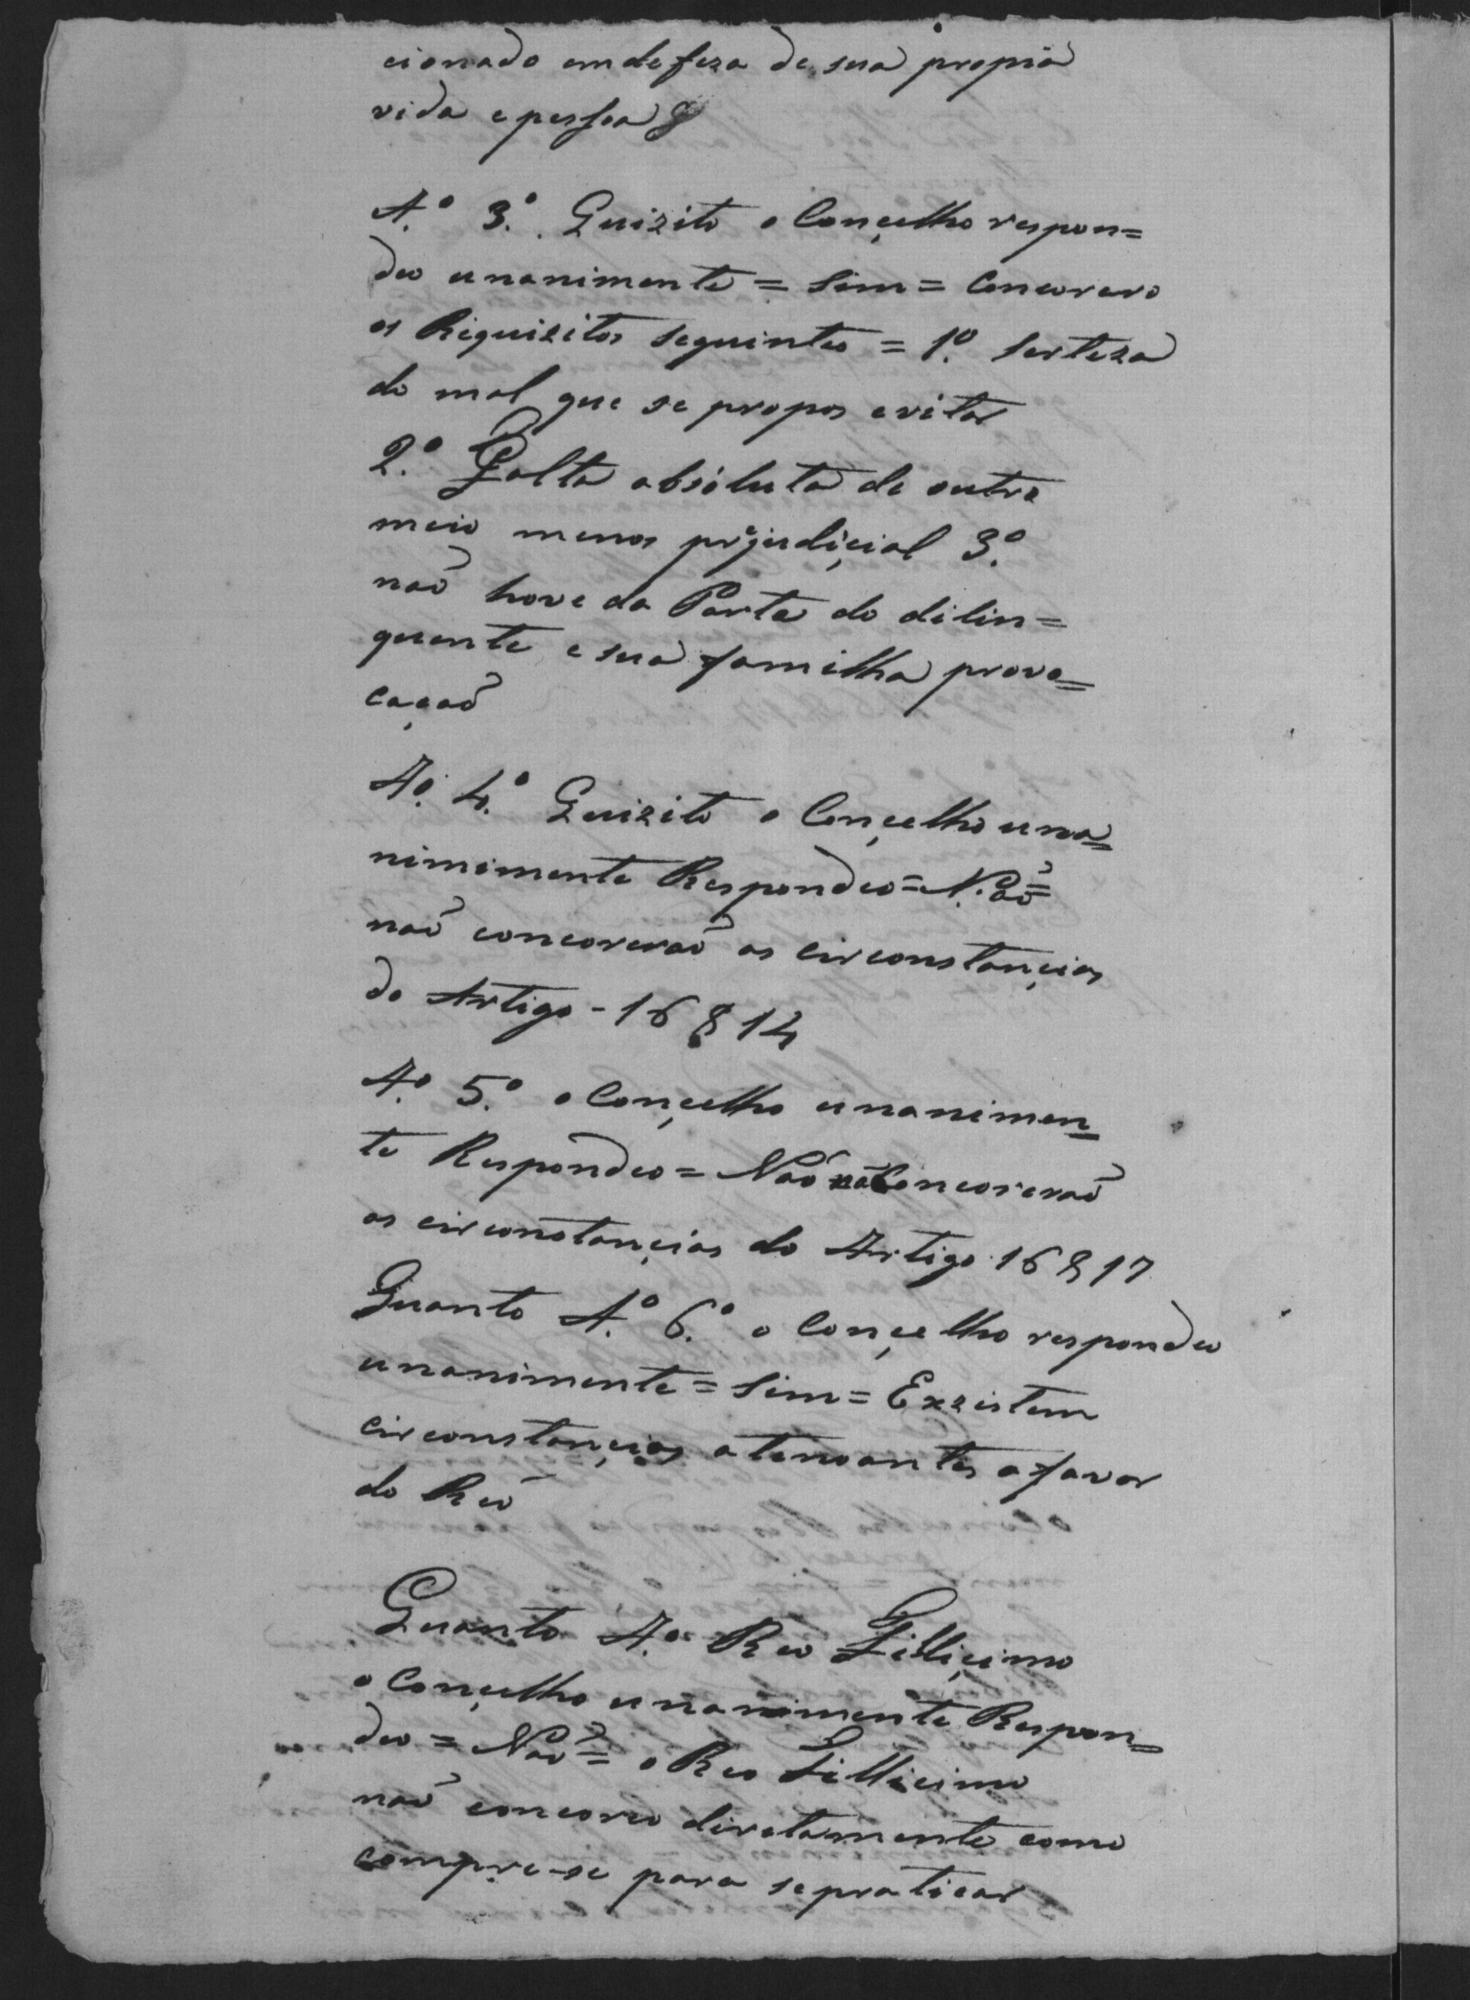 cionado em defeza de sua propia
vida e pessoa §
A.º 3.º Quizito o Conçelho respon=
deo unanimente = Sim = Concorero
os Riquizitos seguintes = 1º. Serteza
do mal que se propos evitar
2.º Falta absoluta de outro
meio menos prejudiçial 3.º
naõ hove da Parte do dilin=
quente e sua familha provo=
caçaõ
Aº. 4.º Quizito o Conçelho una=
nimimente Respondeo = Naõ =
naõ concoreraõ as circonstançias
do Artigo - 16 § 14
A.º 5.º o Conçelho unanimen=
te Respondeo = Naõ não Concoreraõ
as circonstançias do Artigo 16 § 17
Quanto A.º 6.º o Conçelho respondeo
unanimente = Sim = Exzistem
circonstançias atenoantes a favor
do Reo
Quanto A.º Reo Filliçimo
o Conçelho unanimente Respon=
deo = Naõ = o Reo Fillicimo
naõ concoreo diretamente como
compre-se para se praticar